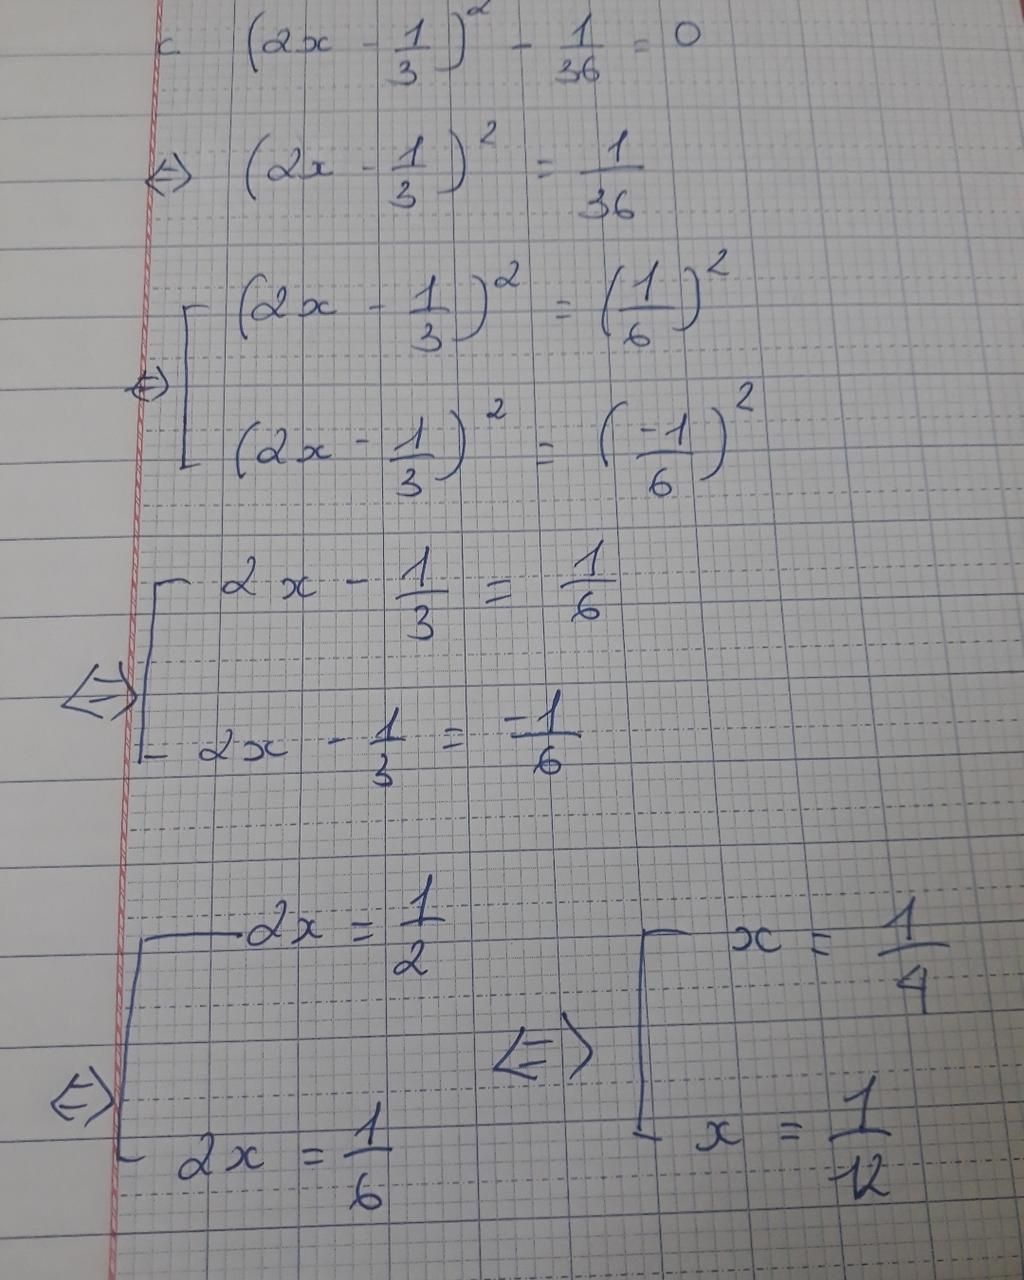 c. (2x - 1/3)² - 1/36 = 0
⇔ (2x - 1/3)² = 1/36
⇔ [ (2x - 1/3)² = (1/6)²
(2x - 1/3)² = (-1/6)²
⇔ [ 2x - 1/3 = 1/6
2x - 1/3 = -1/6
⇔ [ 2x = 1/2 ⇔ [ x = 1/4
2x = 1/6 x = 1/12